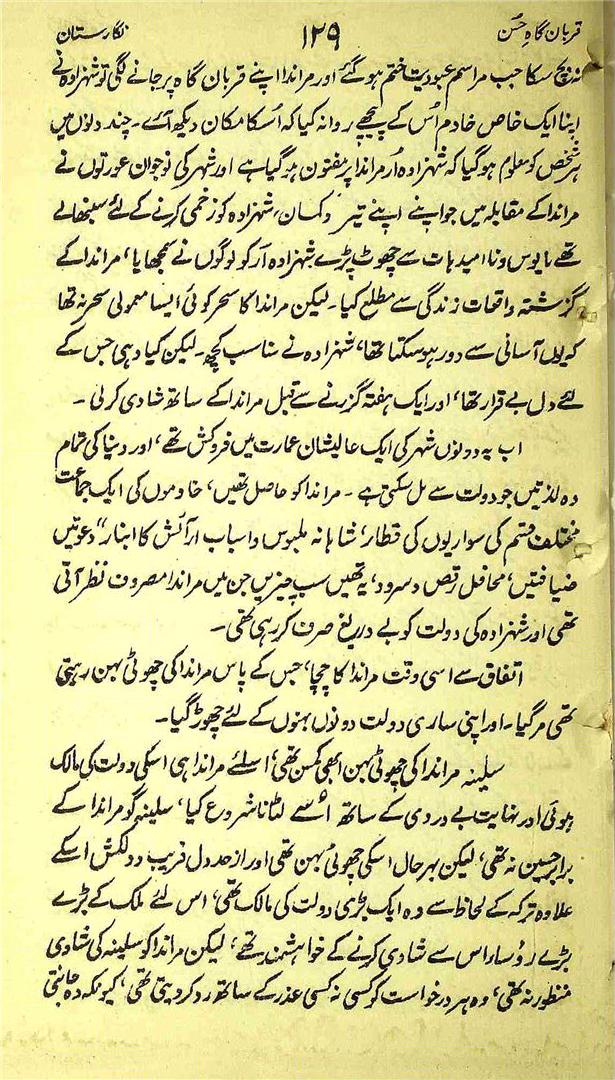 قربان گاہِ حسن ۱۲۹ نگارستان
نہ بچ سکا جب مراسم عبودیت ختم ہو گئے اور مراندا اپنے قربان گاہ پر جانے لگی تو شہزادہ نے
اپنا ایک خاص خادم اُس کے پیچھے روانہ کیا کہ اُسکا مکان دیکھ آئے۔ چند دنوں میں
ہر شخص کو معلوم ہو گیا کہ شہزادہ اُر مراندا پر مفتون ہو گیا ہے اور شہر کی نوجوان عورتوں نے
مراندا کے مقابلہ میں جو اپنے اپنے تیر و کمان، شہزادہ کو زخمی کرنے کے لئے سنبھالے
تھے مایوس و نا امید ہات سے چھوٹ پڑے شہزادہ آر کو لوگوں نے سمجھایا، مراندا کے
گزشتہ واقعات زندگی سے مطلع کیا۔ لیکن مراندا کا سحر کوئی ایسا معمولی سحر نہ تھا
کہ یوں آسانی سے دور ہو سکتا تھا، شہزادہ نے مناسب کچھ۔ لیکن کیا وہی جس کے
لئے دل بے قرار تھا، اور ایک ہفتہ گزرنے سے قبل مراندا کے ساتھ شادی کر لی۔
اب یہ دونوں شہر کی ایک عالیشان عمارت میں فروکش تھے، اور دنیا کی تمام
وہ لذتیں جو دولت سے مل سکتی ہے۔ مراندا کو حاصل تھیں، خادموں کی ایک جماعت
مختلف قسم کی سواریوں کی قطار، شاہانہ ملبوس و اسباب آرائش کا انبار، دعوتیں
ضیافتیں، محافل رقص و سرود، یہ تھیں سب چیزیں جن میں مراندا مصروف نظر آتی
تھی اور شہزادہ کی دولت کو بے دریغ صرف کر رہی تھی۔
اتفاق سے اسی وقت مراندا کا چچا، جس کے پاس مراندا کی چھوٹی بہن رہتی
تھی مر گیا۔ اور اپنی ساری دولت دونوں بہنوں کے لئے چھوڑ گیا۔
سلینہ مراندا کی چھوٹی بہن ابھی کمسن تھی، اسلئے مراندا ہی اسکی دولت کی مالک
ہوئی اور نہایت بے دردی کے ساتھ اُسے لٹانا شروع کیا، سلینہ گو مراندا کے
برابر حسین نہ تھی، لیکن بہر حال اسکی چھوٹی بہن تھی اور ازحد دل فریب و دلکش اسکے
علاوہ ترکہ کے لحاظ سے وہ ایک بڑی دولت کی مالک تھی، اس لئے ملک کے بڑے
بڑے روسار اس سے شادی کرنے کے خواہشمند تھے، لیکن مراندا کو سلینہ کی شادی
منظور نہ تھی، وہ ہر درخواست کو کسی نہ کسی عذر کے ساتھ رد کر دیتی تھی، کیونکہ وہ جانتی